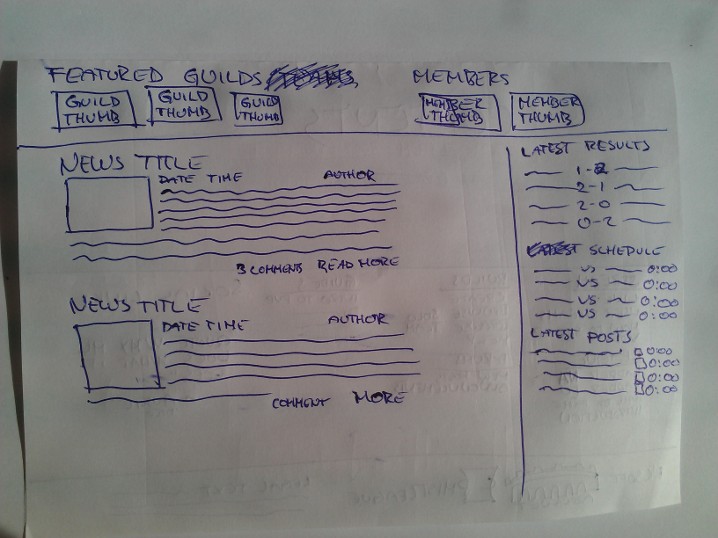 FEATURED GUILDS MEMBERS
GUILD THUMB GUILD THUMB GUILD THUMB MEMBER THUMB MEMBER THUMB
NEWS TITLE
DATE TIME AUTHOR
3 COMMENT READ MORE
NEWS TITLE
DATE TIME AUTHOR
COMMENT MORE
LATEST RESULTS
1-2
2-1
2-0
0-2
SCHEDULE
VS 0:00
VS 0:00
VS 0:00
VS 0:00
LATEST POSTS
0:00
0:00
0:00
0:00